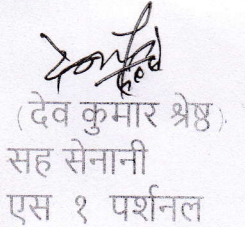 (देव कुमार श्रेष्ठ)
सह सेनानी
एस १ पर्शनल